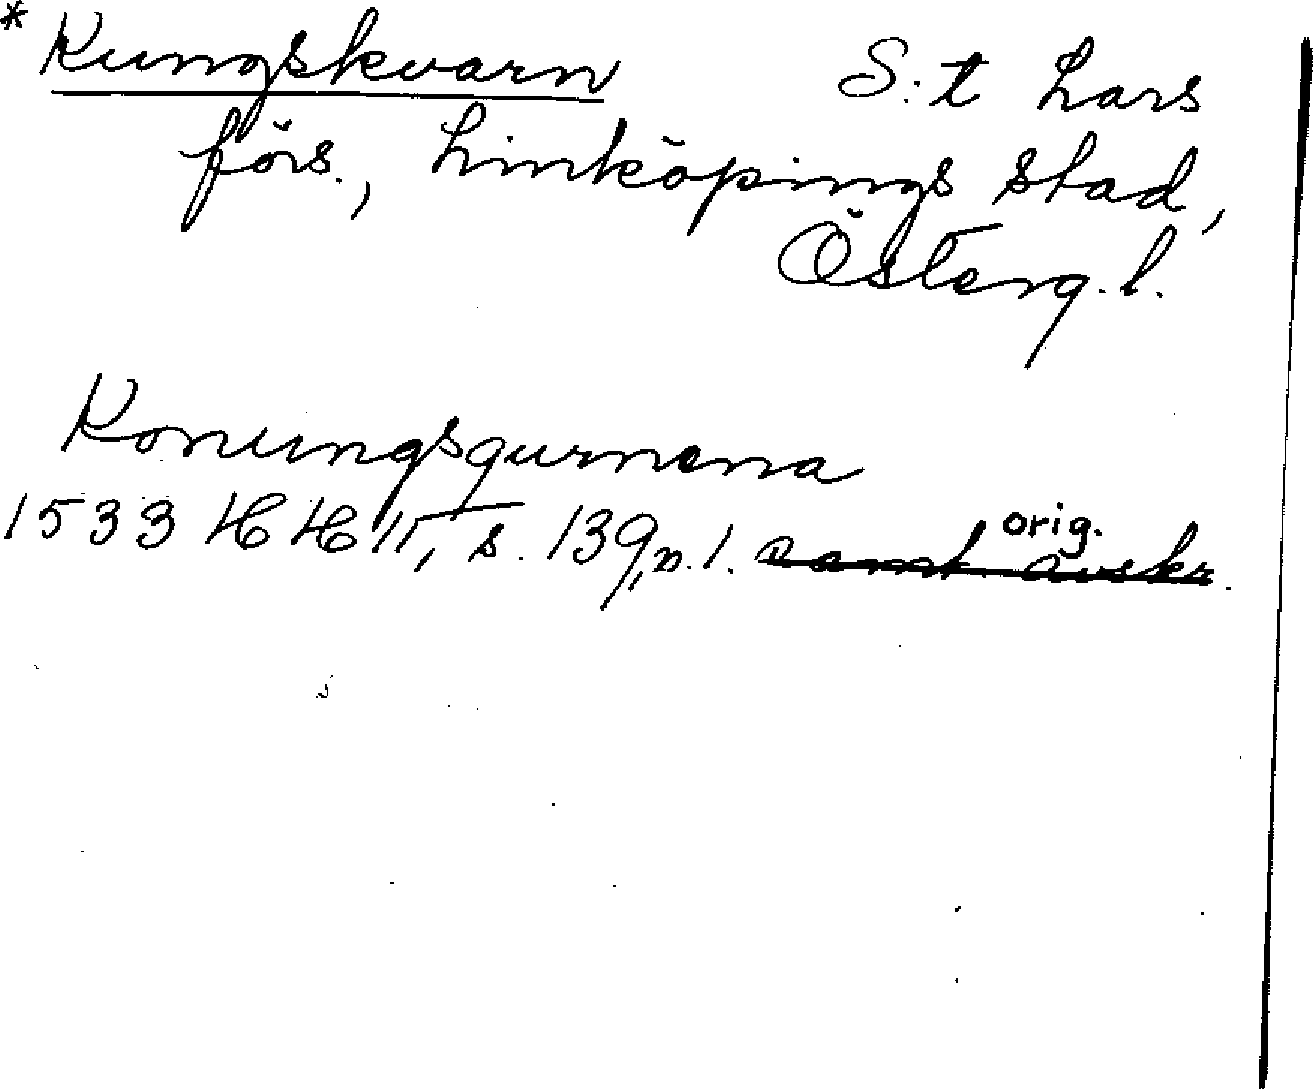 * Kungskvarn S:t Lars
förs., Linköpings stad,
Österg. l.
Konungsqurnena
orig.
1533 HH II, s. 139, n. 1. samt. avskr.